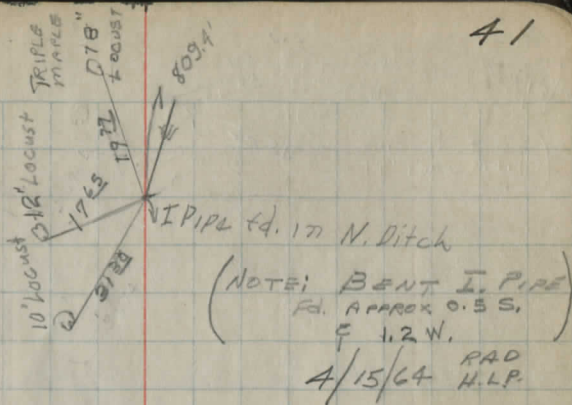 41
TRIPLE
MAPLE
18"
LOCUST
809.4'
19
12" LOCUST
1765
10" LOCUST
I PIPE fd. in N. Ditch
(NOTE: BENT I. PIPE
Fd. APPROX 0.5 S.
& 1.2 W.)
4/15/64 RAD
H.L.P.